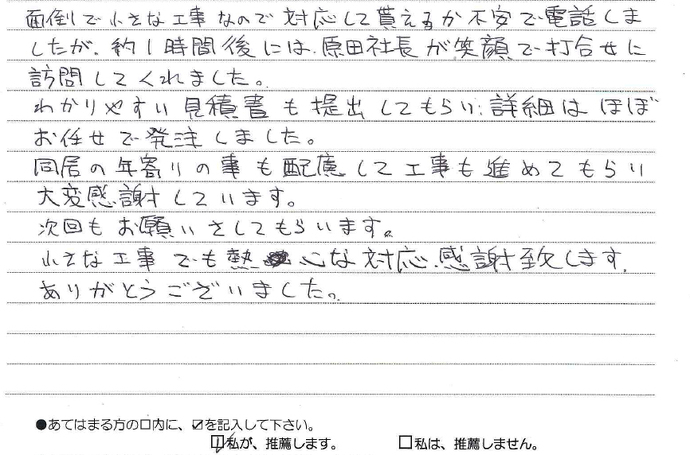 面倒で小さな工事なので対応して貰えるか不安で電話しま
したが、約1時間後には、原田社長が笑顔で打合せに
訪問してくれました。
わかりやすい見積書も提出してもらい、詳細はほぼ
お任せで発注しました。
同居の年寄りの事も配慮して工事も進めてもらい
大変感謝しています。
次回もお願いさしてもらいます。
小さな工事でも熱心な対応、感謝致します。
ありがとうございました。
●あてはまる方の口内に、☑を記入して下さい。
☑私が、推薦します。 □私は、推薦しません。